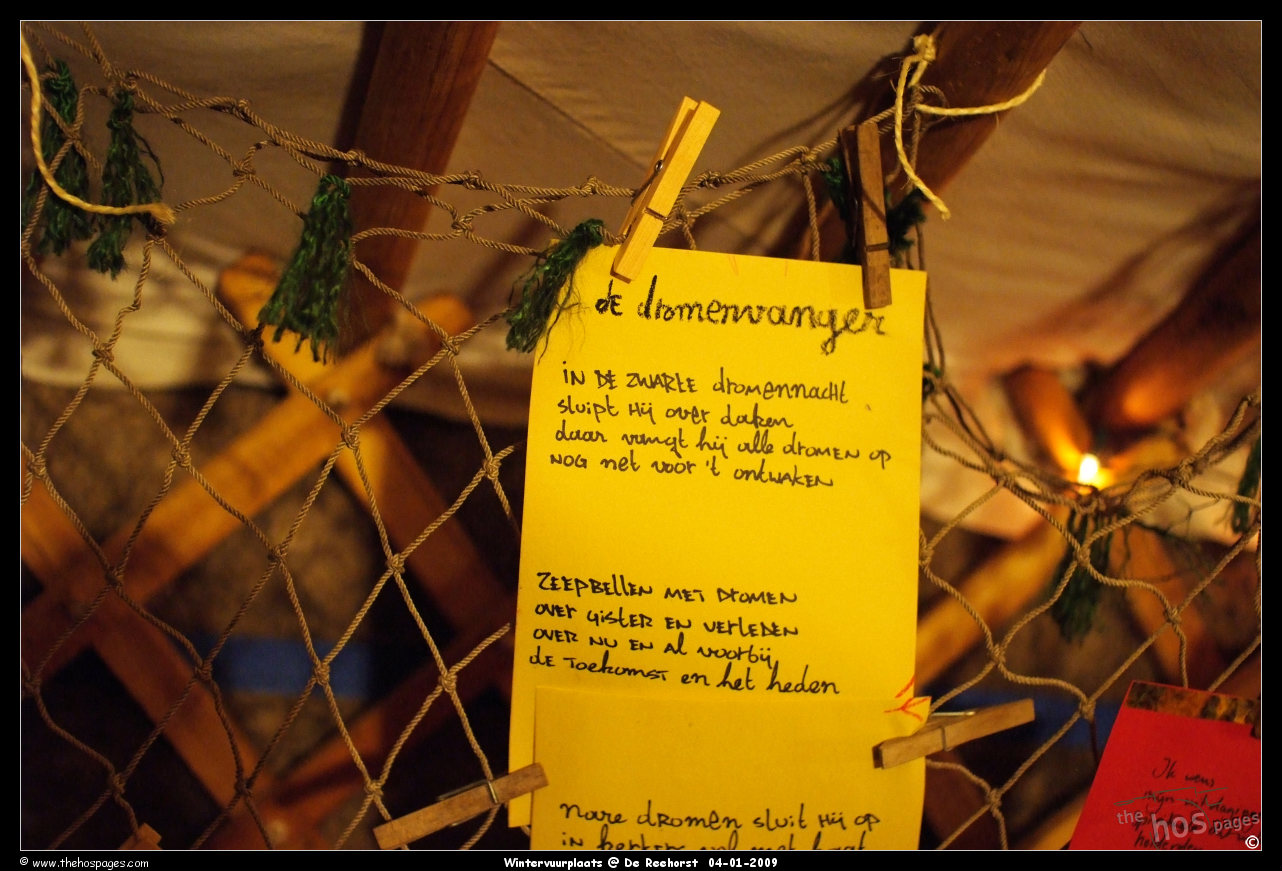 de dromenvanger
iN DE ZWARTE dromennacht
sluipt Hij over daken
daar vangt hij alle dromen op
NOG net voor 't ontwaken
ZEEPBELLEN MET DROMEN
over GISTER EN VERLEDEN
over NU EN Al voorbij
de Toekomst en het heden
Nare dromen sluit Hij op
in kerkers vol met
Ik wens
mijn
the hos pages
©
© www.thehospages.com
Wintervuurplaats @ De Reehorst 04-01-2009